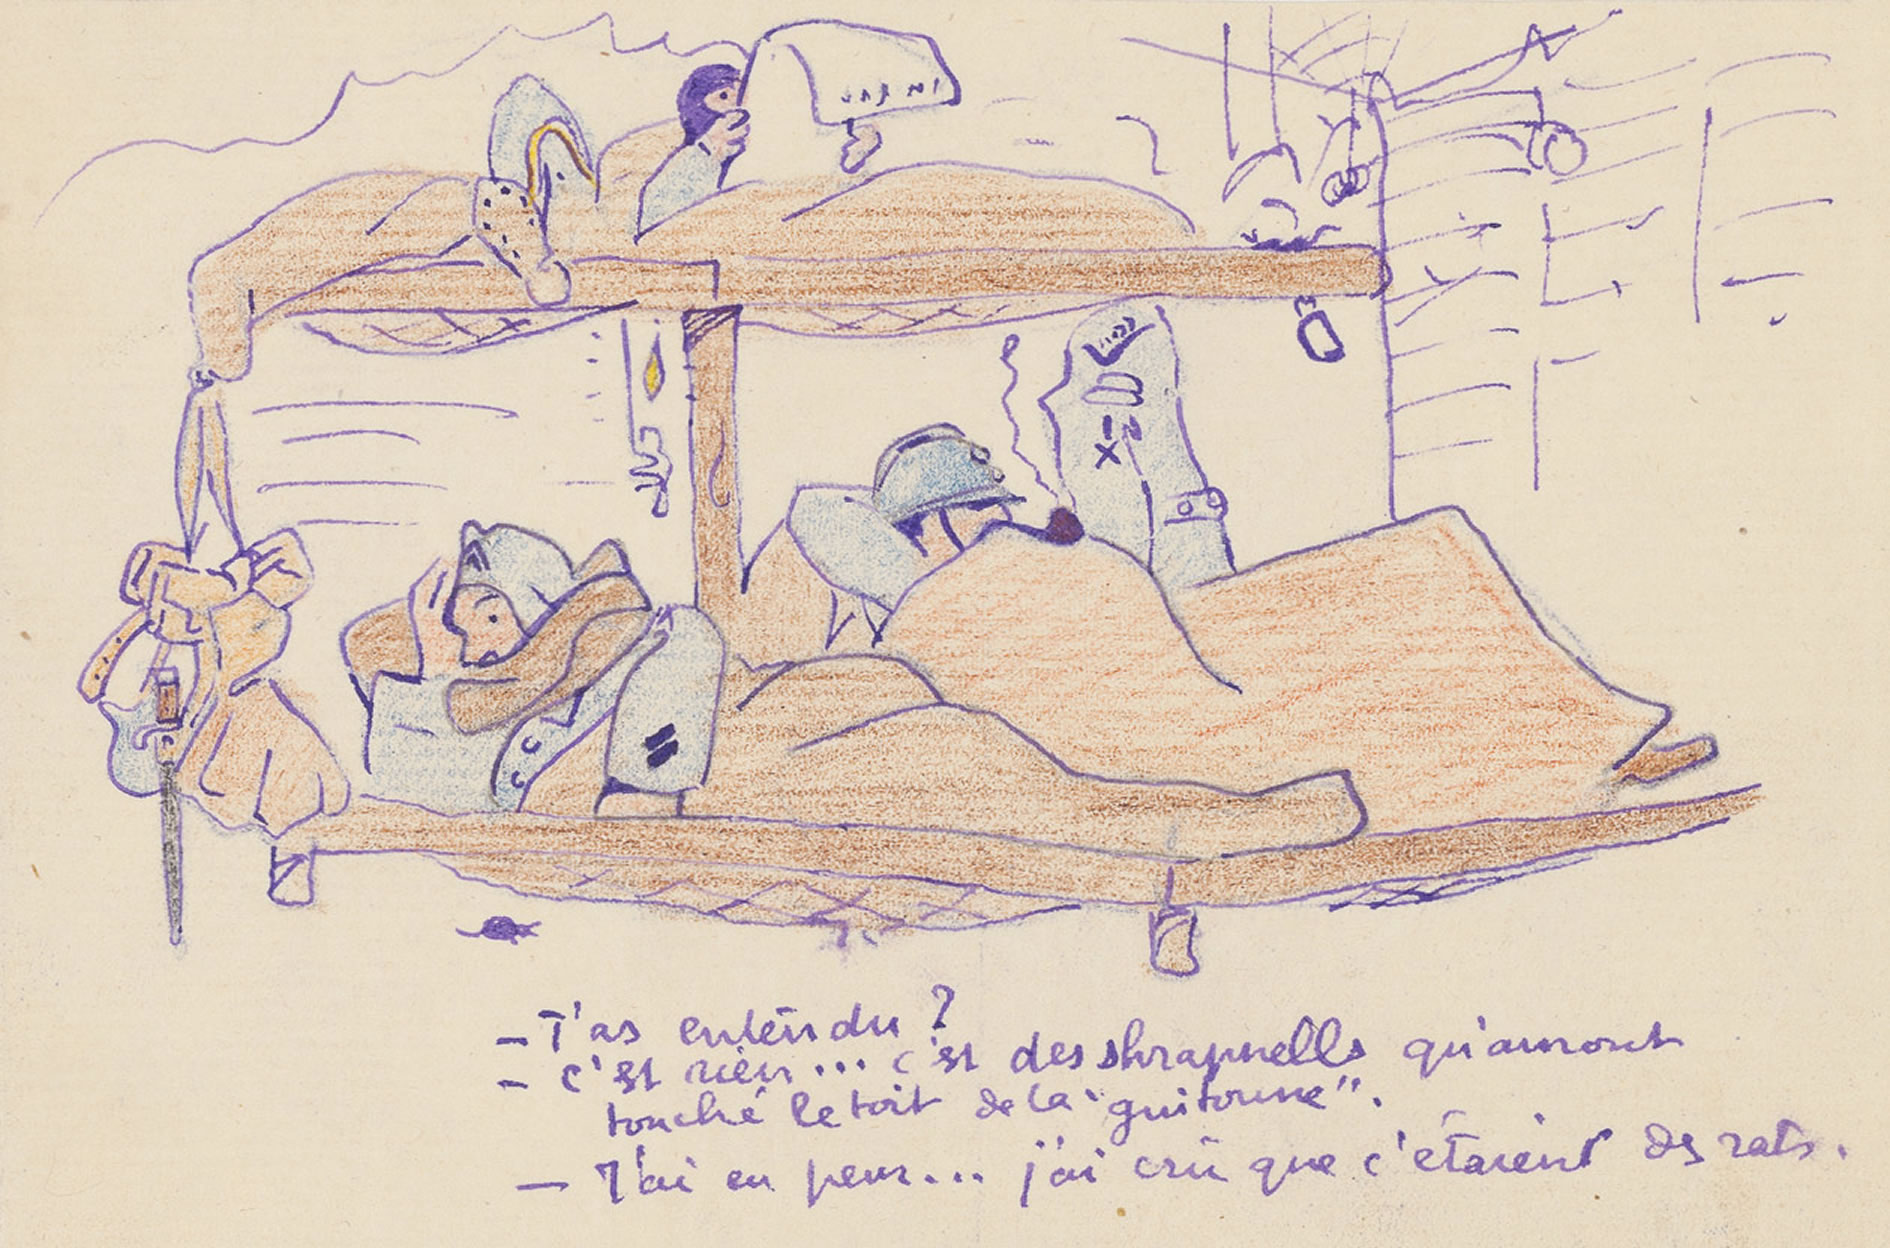 - T'as entendu ?
- c'est rien... c'est des shrapnells qu'auront
touché le toit de la "guitoune".
- J'ai eu peur... j'ai cru que c'étaient des rats.